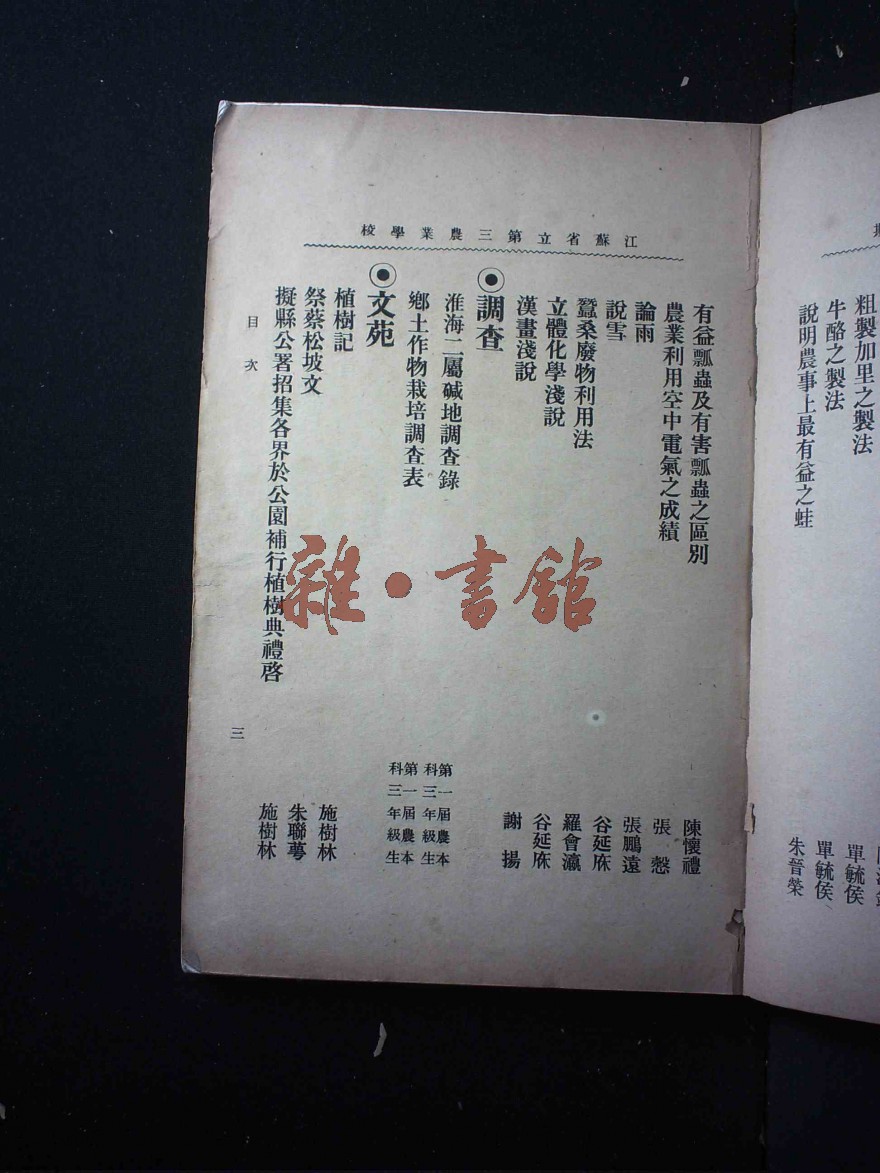 粗製加里之製法
牛酪之製法 單毓俟
說明農事上最有益之蛙 單毓俟
朱晉榮
江蘇省立第三農業學校
有益瓢蟲及有害瓢蟲之區別 陳懷禮
農業利用空中電氣之成績 張慤
論雨 張鵬遠
說雪 谷延庥
蠶桑廢物利用法 羅會瀛
立體化學淺說 谷延庥
漢畫淺說 謝揚
調查
淮海二屬碱地調查錄 第一屆農本科三年級生
鄉土作物栽培調查表 第一屆農本科三年級生
文苑
植樹記 施樹林
祭蔡松坡文 朱聯萼
擬縣公署招集各界於公園補行植樹典禮啓 施樹林
目次
三
雜·書館